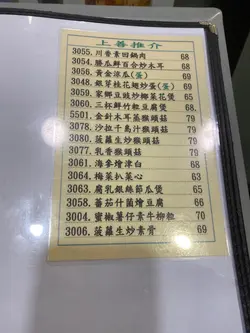 上善推介
3055. 川香素回鍋肉 68
3054. 勝瓜鮮百合炒木耳 68
3056. 黃金涼瓜(蛋) 65
3048. 銀芽桂花翅炒蛋(蛋) 69
3059. 家鄉豆豉炒椰菜花煲 65
3060. 三杯鮮竹輕豆腐煲 68
5501. 金針木耳蒸猴頭菇 68
3078. 沙拉千島汁猴頭菇 79
3080. 菠蘿生炒猴頭菇 70
3077. 乳香猴頭菇 79
3011. 海參燴津白 68
3064. 梅菜扒菜心 63
3063. 腐乳銀絲節瓜煲 65
3058. 蕃茄什菌燴豆腐 68
3004. 蜜椒薯仔素牛柳粒 79
3006. 菠蘿生炒素骨 69